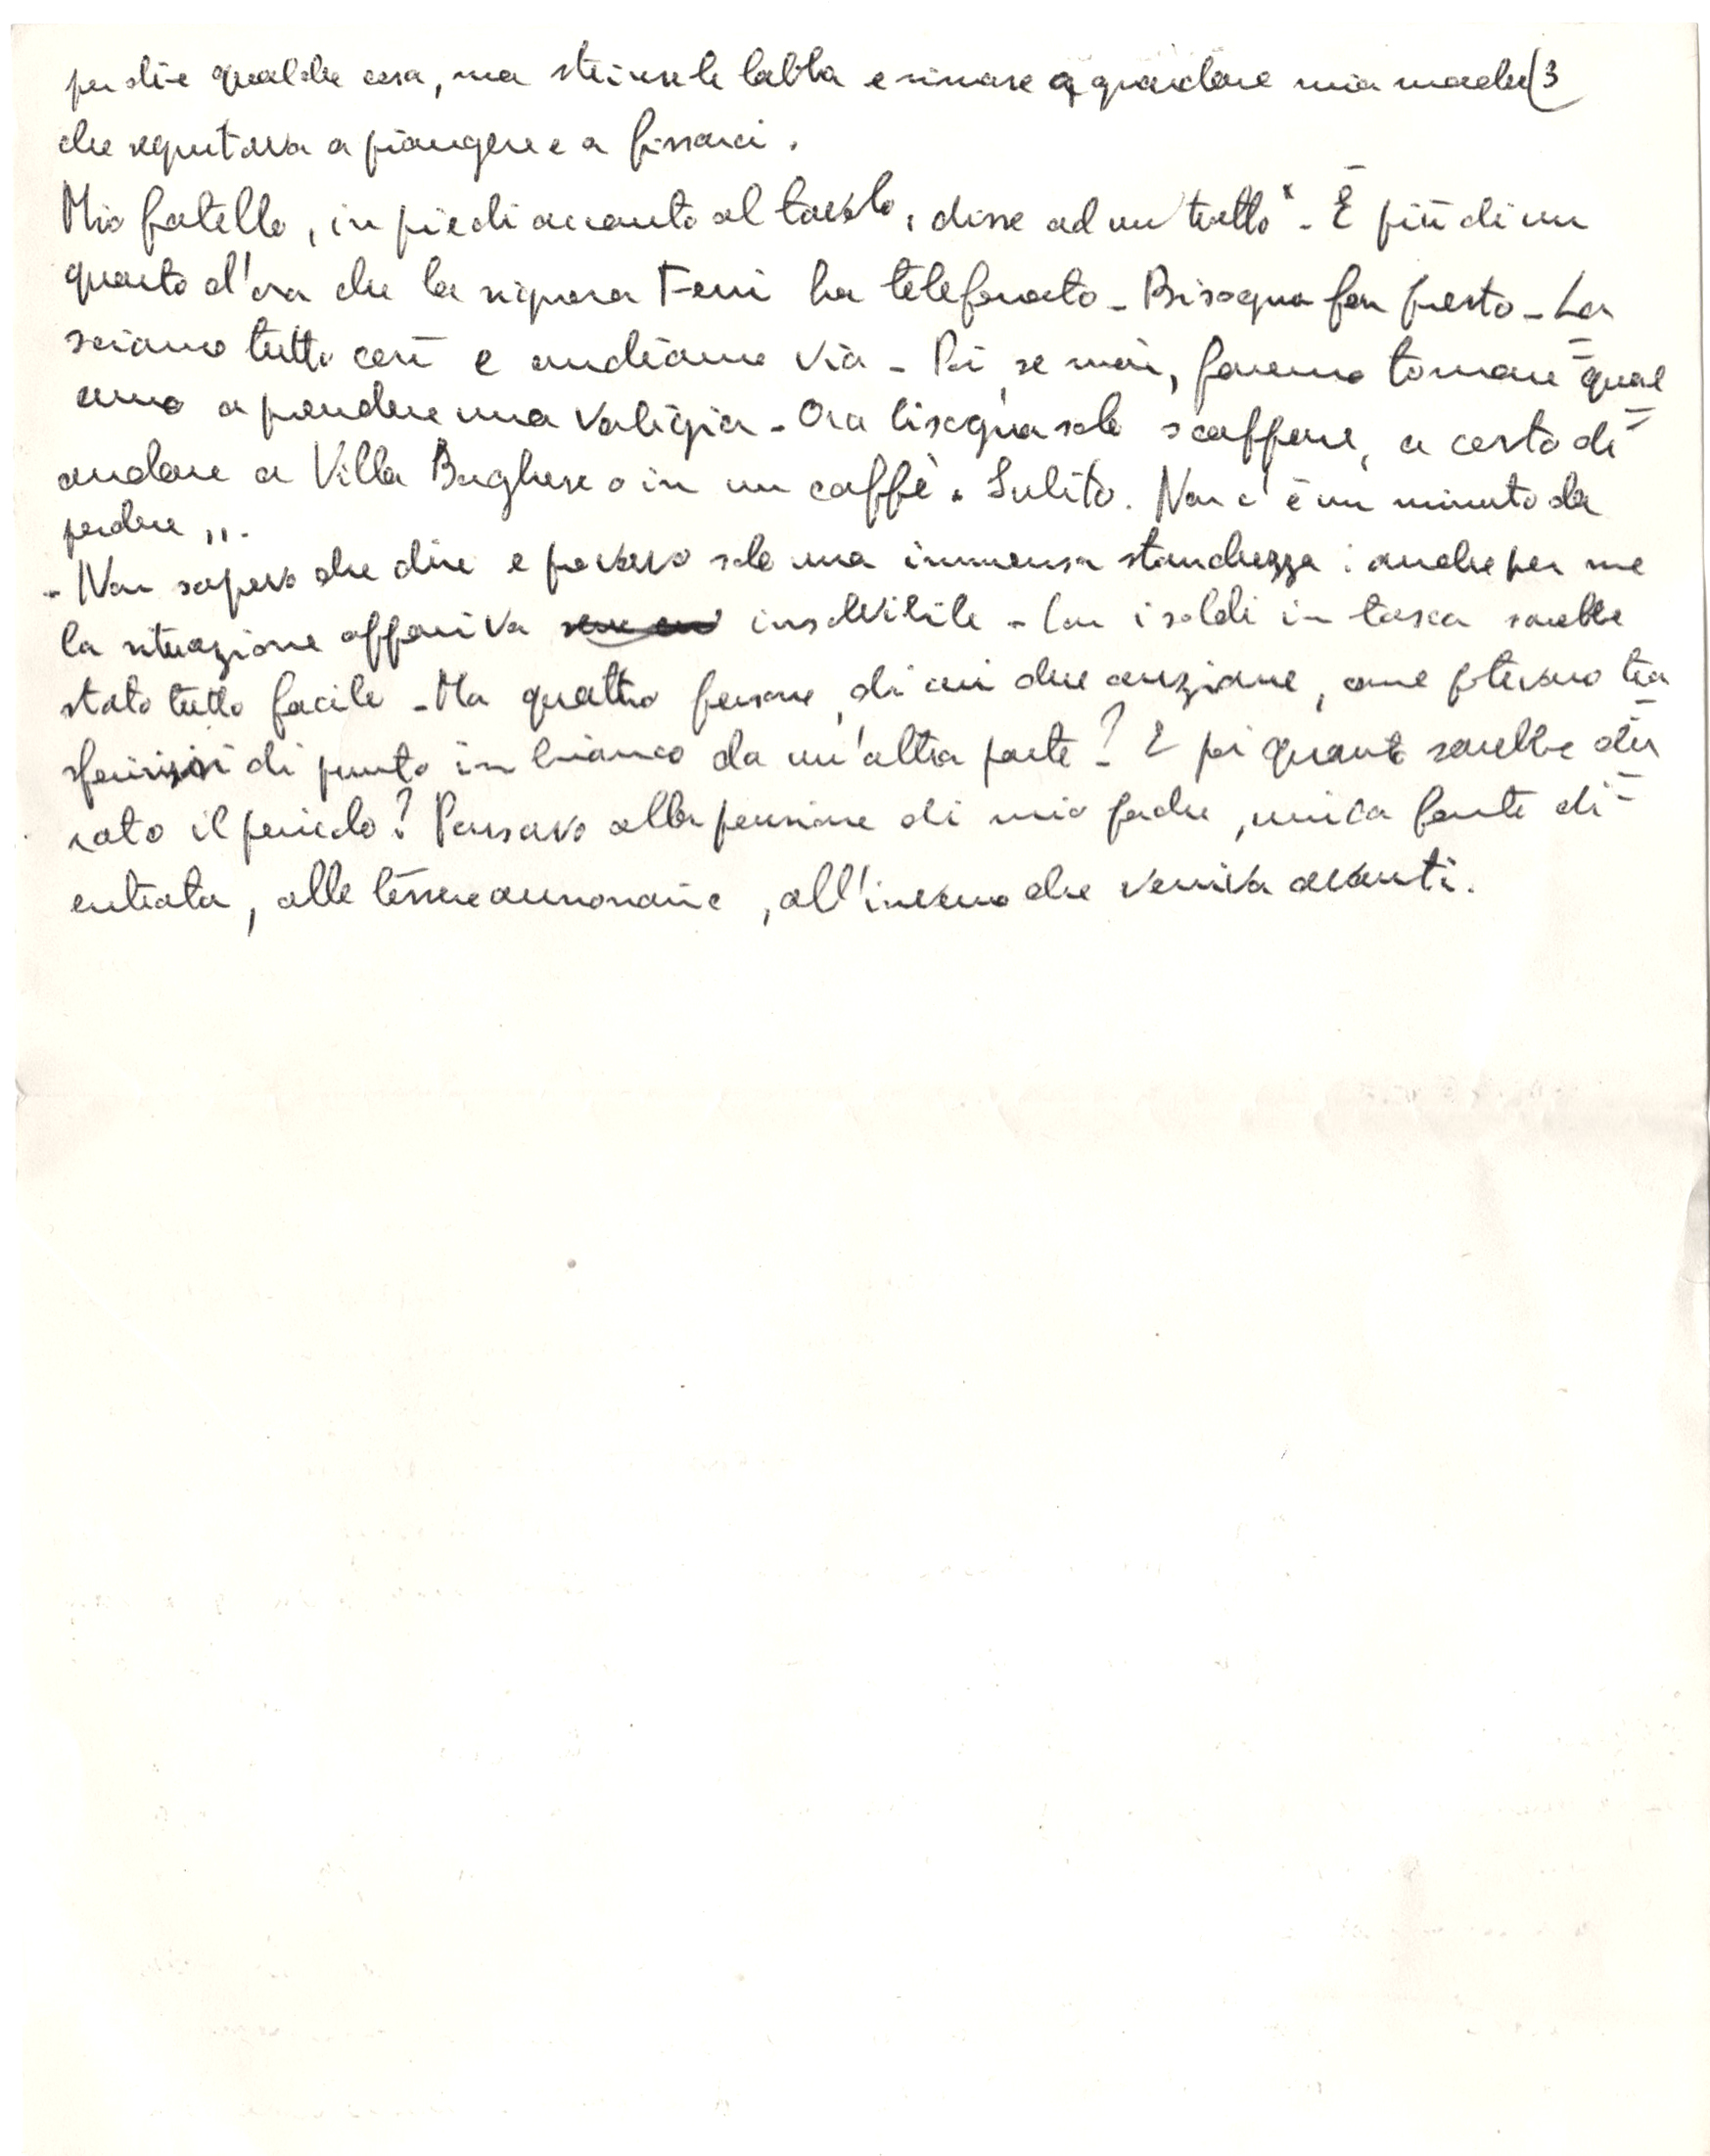 per dire qualche cosa, ma strinse le labbra e rimase a guardare mia madre (3
che seguitava a piangere e a fissarci.
Mio fratello, in piedi accanto al tavolo, disse ad un tratto " - È più di un
quarto d'ora che la signora Ferri ha telefonato - Bisogna far presto - La
sciamo tutto così e andiamo via - Poi, se mai, faremo tornare qual
cuno a prendere una valigia - Ora bisogna solo scappare, a costo di
andare a Villa Borghese o in un caffè. Subito. Non c'è un minuto da
perdere ".
- Non sapevo che dire e provavo solo una immensa stanchezza: anche per me
la situazione appariva insolvibile - Con i soldi in tasca sarebbe
stato tutto facile - Ma quattro persone, di cui due anziane, come potevano tra
sferirsi di punto in bianco da un'altra parte? E poi quanto sarebbe du
rato il pericolo? Pensavo alla pensione di mio padre, unica fonte di
entrata, alle tessere annonarie, all'inverno che veniva avanti.